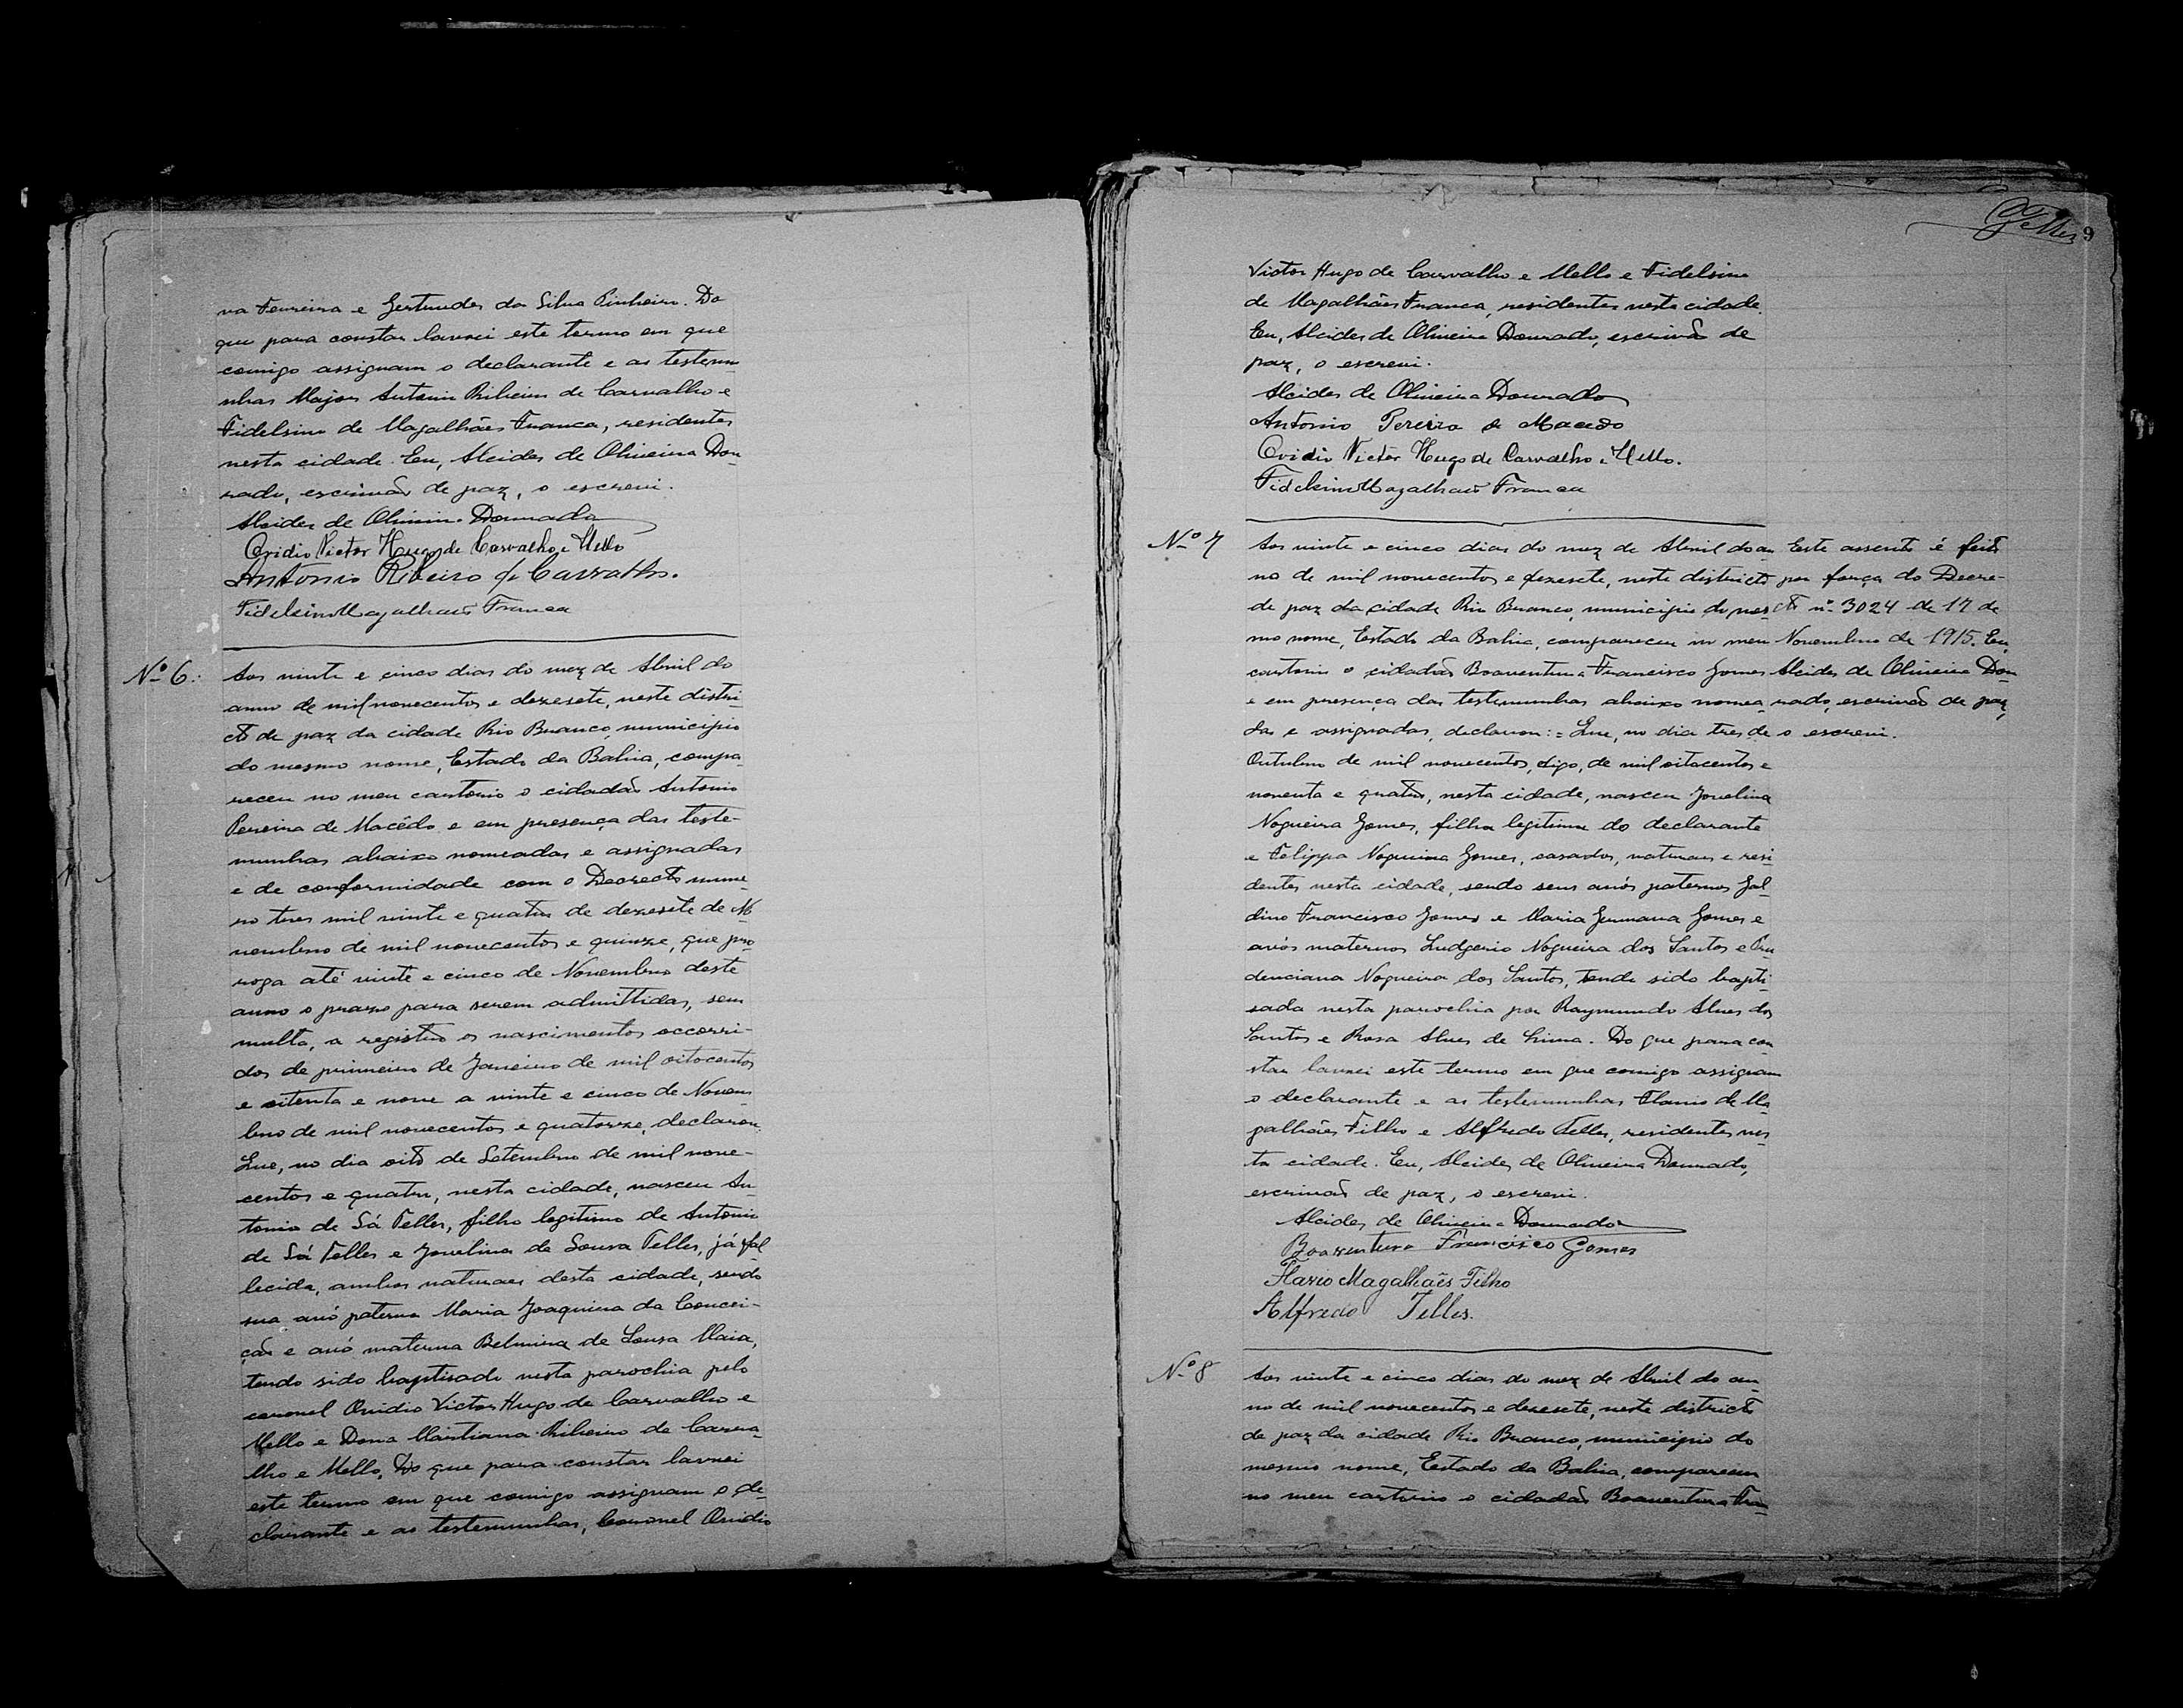 va Ferreira e Gertrudes da Silva Pinheiro. Do
que para constar lavrei este termo em que
comigo assignam o declarante e as testemu
nhas Major Antonio Ribeiro de Carvalho e
Fidelsino de Magalhães Franca, residentes
nesta cidade. Eu, Alcides de Oliveira Dou-
rado, escrivão de paz, o escrevi.
Alcides de Oliveira Dourado
Ovidio Victor Hugo de Carvalho e Mello
Antonio Ribeiro de Carvalho.
Fidelsino Magalhães Franca
Nº 6:
Aos vinte e cinco dias do mez de Abril do
anno de mil novecentos e dezesete, neste distri-
cto de paz da cidade Rio Branco, municipio
do mesmo nome, Estado da Bahia, compa-
receu no meu cartorio o cidadão Antonio
Pereira de Macêdo e em presença das teste-
munhas abaixo nomeadas e assignadas
e de conformidade com o Decrecto nume-
ro tres mil vinte e quatro de dezesete de No-
vembro de mil novecentos e quinze, que pro-
roga até vinte e cinco de Novembro deste
anno o prazo para serem admittidas, sem
multa, a registro os nascimentos occorri-
dos de primeiro de Janeiro de mil oitocentos
e oitenta e nove a vinte e cinco de Novem-
bro de mil novecentos e quatorze, declarou:
Que, no dia oito de Setembro de mil nove-
centos e quatro, nesta cidade, nasceu An-
tonio de Sá Telles, filho legitimo de Antonio
de Sá Telles e Jovelina de Sousa Telles, já fal
lecida, ambos naturaes desta cidade, sendo
sua avó paterna Maria Joaquina da Concei-
ção e avó materna Belmira de Sousa Maia,
tendo sido baptisado nesta parochia pelo
coronel Ovidio Victor Hugo de Carvalho e
Mello e Dona Martiana Ribeiro de Carva-
lho e Mello. Do que para constar lavrei
este termo em que comigo assignam o de-
clarante e as testemunhas, Coronel Ovidio
Telles 9
Victor Hugo de Carvalho e Mello e Fidelsino
de Magalhães Franca, residentes nesta cidade.
Eu, Alcides de Oliveira Dourado, escrivão de
paz, o escrevi.
Alcides de Oliveira Dourado
Antonio Pereira de Macedo
Ovidio Victor Hugo de Carvalho e Mello.
Fidelsino Magalhães Franca
Nº 7
Aos vinte e cinco dias do mez de Abril do an
no de mil novecentos e dezesete, neste districto
de paz da cidade Rio Branco, municipio do mes
mo nome, Estado da Bahia, compareceu no meu
cartorio o cidadão Boaventura Francisco Gomes
e em presença das testemunhas abaixo nomea
das e assignadas, declarou:= Que, no dia tres de
Outubro de mil novecentos, digo, de mil oitocentos e
noventa e quatro, nesta cidade, nasceu Jovelina
Nogueira Gomes, filha legitima do declarante
e Felippa Nogueira Gomes, casados, naturaes e resi-
dentes nesta cidade, sendo seus avós paternos Gal
dino Francisco Gomes e Maria Germana Gomes e
avós maternos Ludgerio Nogueira dos Santos e Pru
denciana Nogueira dos Santos, tendo sido bapti-
sada nesta parochia por Raymundo Alves dos
Santos e Rosa Alves de Lima. Do que para con
star lavrei este termo em que comigo assignam
o declarante e as testemunhas Flavio de Ma-
galhães Filho e Alfredo Telles, residentes nes-
ta cidade. Eu, Alcides de Oliveira Dourado,
escrivão de paz, o escrevi.
Alcides de Oliveira Dourado
Boaventura Francisco Gomes
Flavio Magalhães Filho
Alfredo Telles.
Este assento é feito
por força do Decre-
cto nº 3024 de 17 de
Novembro de 1915. Eu,
Alcides de Oliveira Dou-
rado, escrivão de paz,
o escrevi.
Nº 8
Aos vinte e cinco dias do mez de Abril do an-
no de mil novecentos e dezesete, neste districto
de paz da cidade Rio Branco, municipio do
mesmo nome, Estado da Bahia, compareceu
no meu cartorio o cidadão Boaventura Fran-